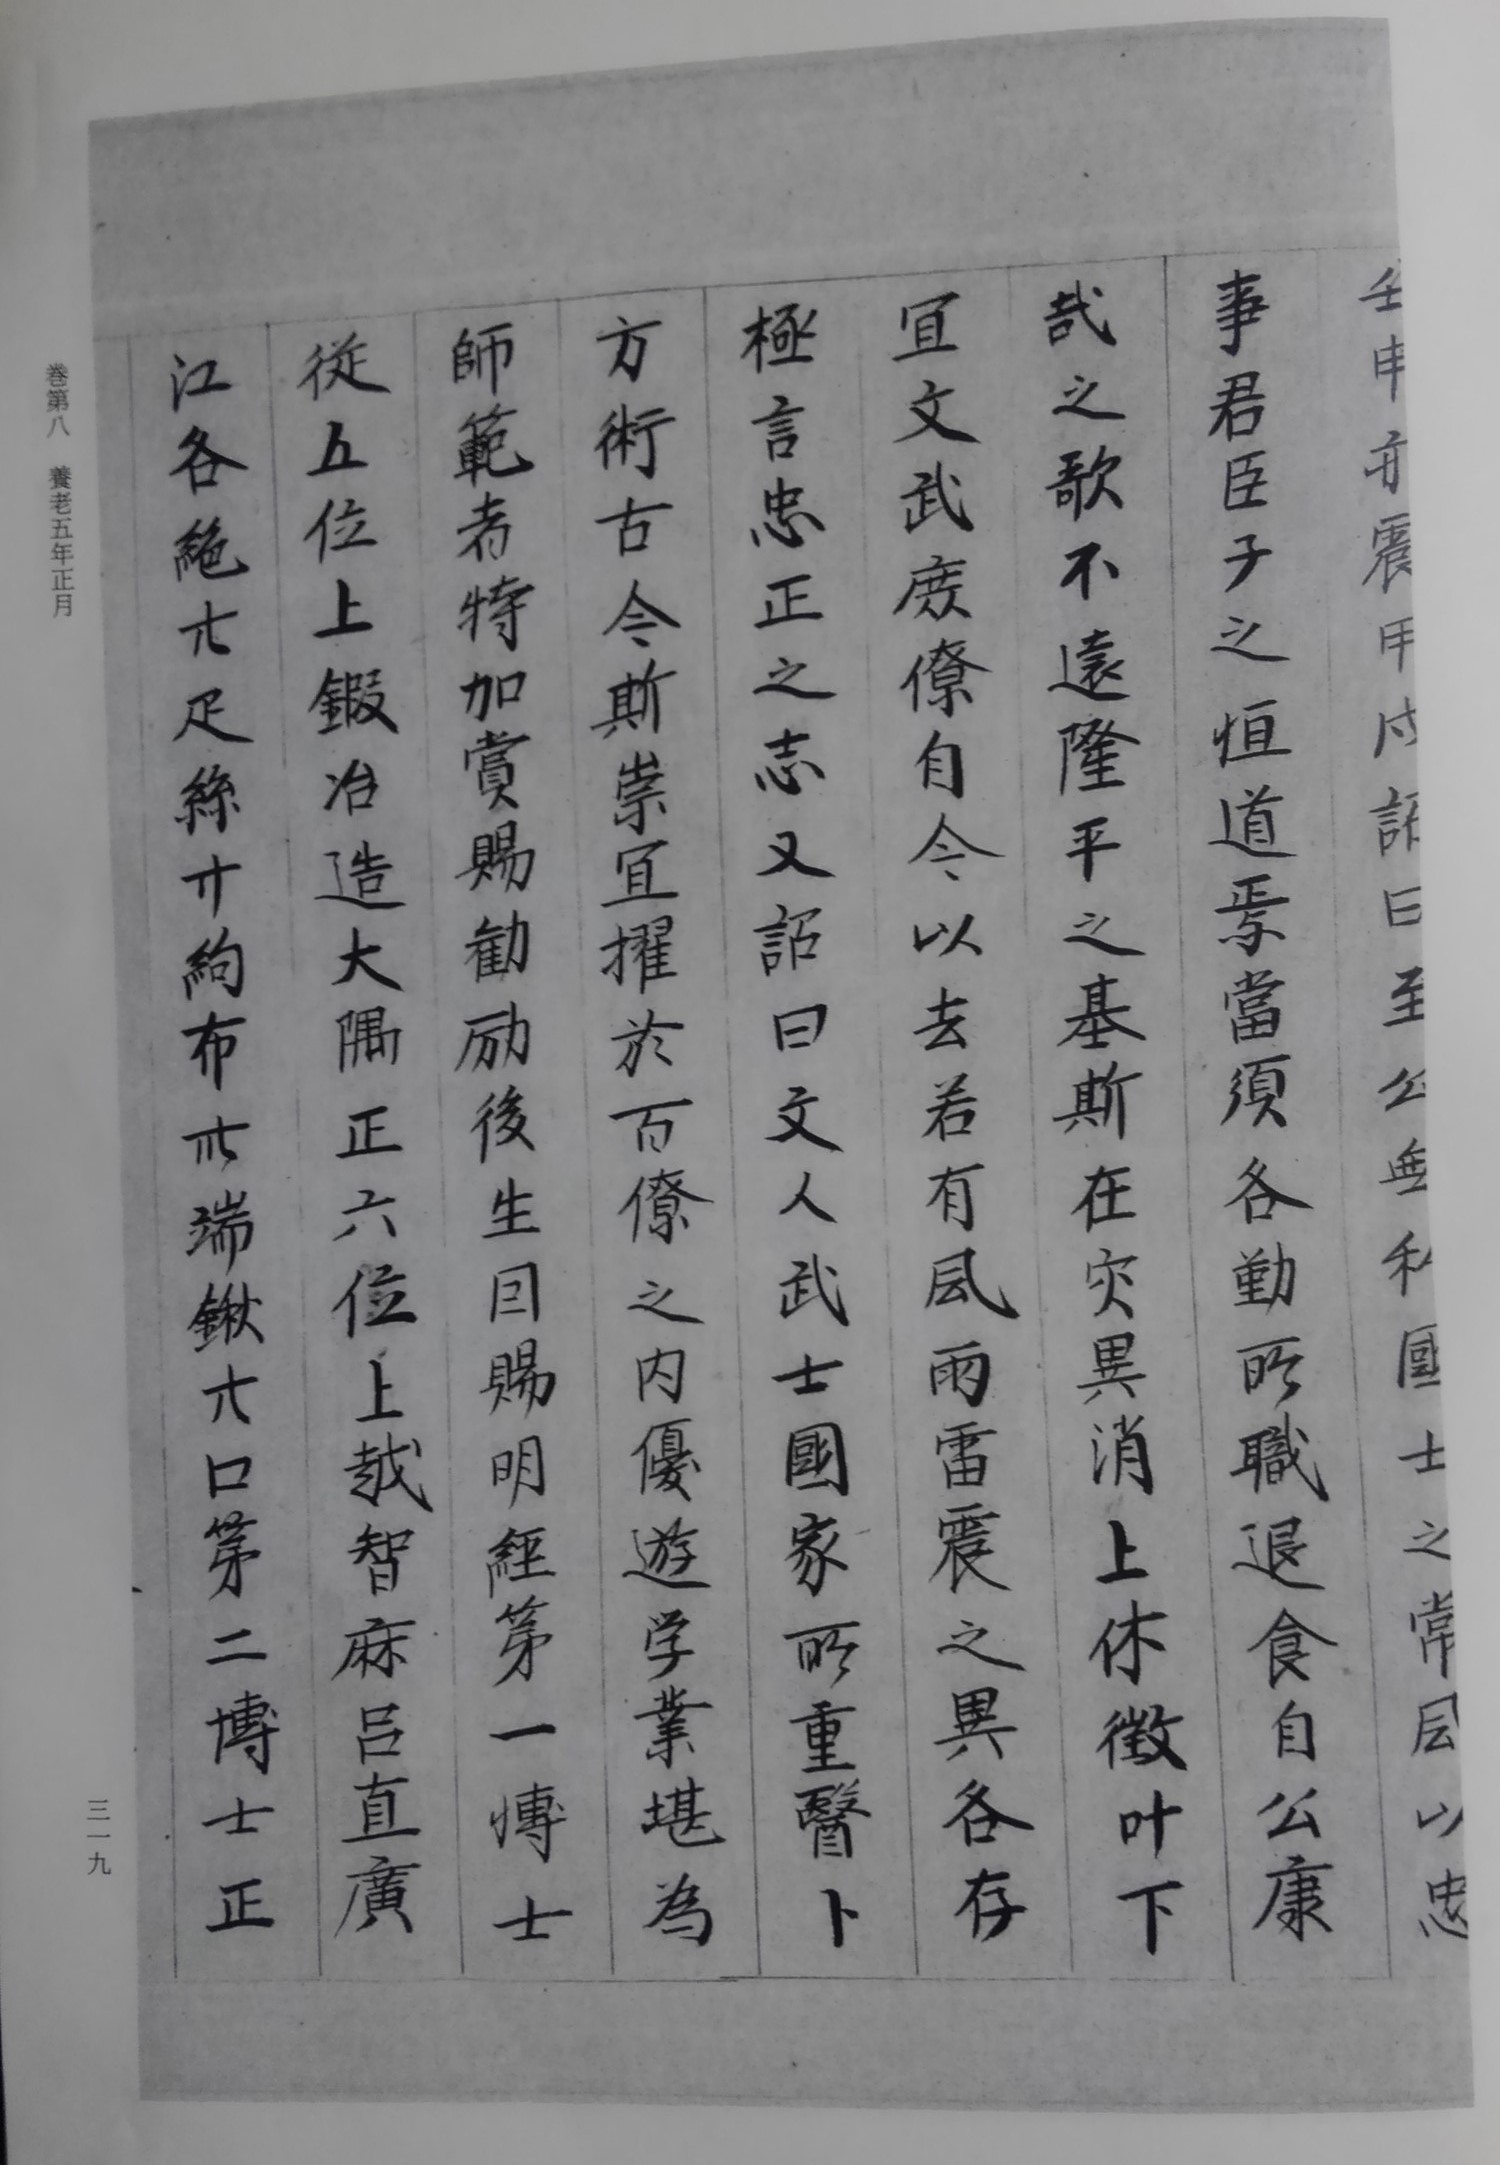 壬申亦震甲戌詔曰至公無私國士之常風以忠
事君臣子之恒道焉當須各勤所職退食自公康
哉之歌不遠隆平之基斯在灾異消上休徴叶下
宜文武庶僚自今以去若有風雨雷震之異各存
極言忠正之志又詔曰文人武士國家所重醫卜
方術古今斯崇宜擢於百僚之内優遊学業堪為
師範者特加賞賜勧励後生因賜明經第一博士
従五位上鍜冶造大隅正六位上越智麻呂直廣
江各絁廿疋絲廿絇布卅端鍬廿口第二博士正
巻第八　養老五年正月
三一九